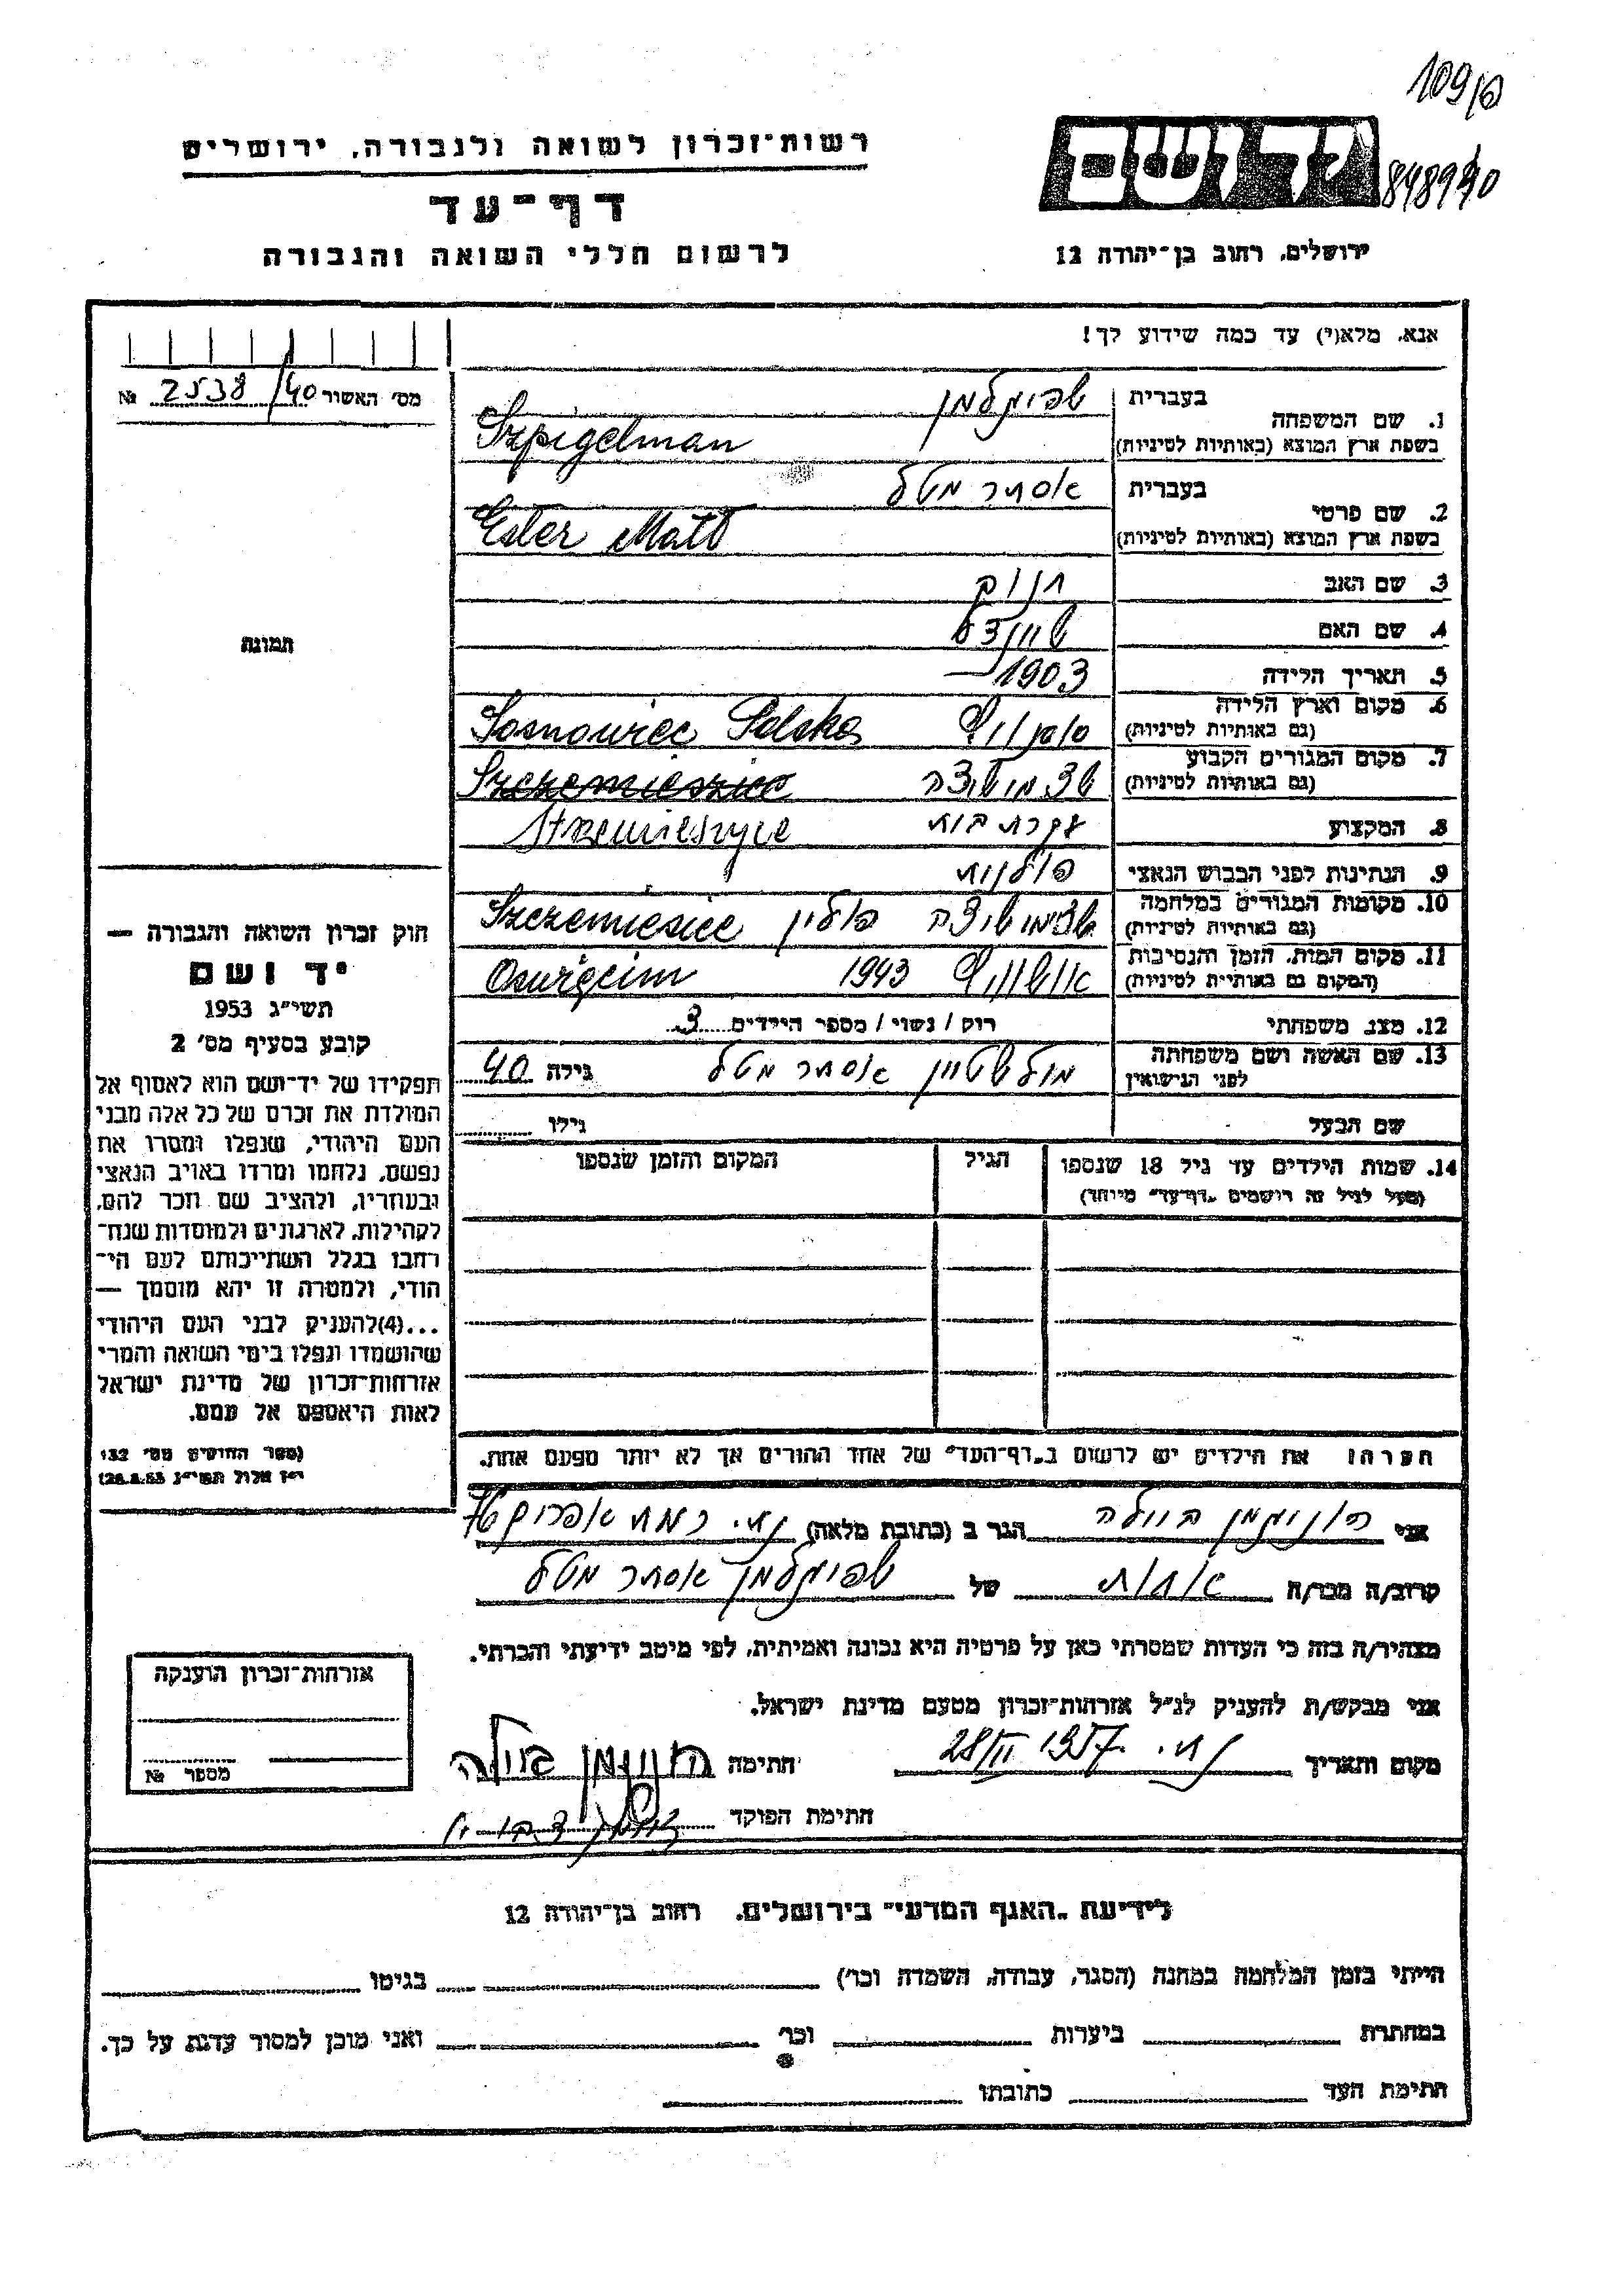 109/פ
רשות־זכרון לשואה ולגבורה, ירושלים
יד ושם
848940
דף־עד
לרשום חללי השואה והגבורה
ירושלים, רחוב בן־יהודה 12
אנא, מלא(י) עד כמה שידוע לך!
מס' האשור 2538/40 №
1. שם המשפחה
בעברית שפיגלמן
בשפת ארץ המוצא (באותיות לטיניות) Szpigelman
2. שם פרטי
בעברית אסתר מטל
בשפת ארץ המוצא (באותיות לטיניות) Ester Matl
3. שם האב חנוך
4. שם האם שיינדל
5. תאריך הלידה 1903
6. מקום וארץ הלידה
(גם באותיות לטיניות) סוסנוביץ Sosnowiec Polska
7. מקום המגורים הקבוע
(גם באותיות לטיניות) שצמישיצה Szczemieszice
Strzemieszyce
8. המקצוע עקרת בית
9. הנתינות לפני הכבוש הנאצי פולנית
10. מקומות המגורים במלחמה
(גם באותיות לטיניות) שצמישיצה פולין Szczemiesice
11. מקום המות, הזמן והנסיבות
(המקום גם באותיות לטיניות) אושוויץ 1943 Oswięcim
12. מצב משפחתי רוק / נשוי / מספר הילדים 3
13. שם האשה ושם משפחתה
לפני הנישואין אסתר מטל גילה 40
שם הבעל גילו
14. שמות הילדים עד גיל 18 שנספו
(מעל לגיל זה רושמים "דף־עד" מיוחד)
הגיל
המקום והזמן שנספו
תמונה
חוק זכרון השואה והגבורה —
יד ושם
תשי"ג 1953
קובע בסעיף מס' 2
תפקידו של יד־ושם הוא לאסוף אל
המולדת את זכרם של כל אלה מבני
העם היהודי, שנפלו ומסרו את
נפשם, נלחמו ומרדו באויב הנאצי
ובעוזריו, ולהציב שם וזכר להם,
לקהילות, לארגונים ולמוסדות שנח־
רבו בגלל השתייכותם לעם הי־
הודי, ולמטרה זו יהא מוסמך —
...(4) להעניק לבני העם היהודי
שהושמדו ונפלו בימי השואה והמרי
אזרחות־זכרון של מדינת ישראל
לאות היאספם אל עמם.
(ספר החוקים מס' 132,
י"ז אלול תשי"ג 28.8.53)
הערה: את הילדים יש לרשום ב"דף־העד" של אחד ההורים אך לא יותר מפעם אחת.
אני ביילה הגר ב (כתובת מלאה)
קרוב/ה מכר/ה אחות של שפיגלמן אסתר מטל
מצהיר/ה בזה כי העדות שמסרתי כאן על פרטיה היא נכונה ואמיתית, לפי מיטב ידיעתי והכרתי.
אני מבקש/ת להעניק לנ"ל אזרחות־זכרון מטעם מדינת ישראל.
מקום ותאריך 28/II 1957 חתימה ביילה
חתימת הפוקד
אזרחות־זכרון הוענקה
מספר №
לידיעת "האגף המדעי" בירושלים, רחוב בן־יהודה 12
הייתי בזמן המלחמה במחנה (הסגר, עבודה, השמדה וכו') בגיטו
במחתרת ביערות וכו' ואני מוכן למסור עדות על כך.
חתימת העד כתובתו